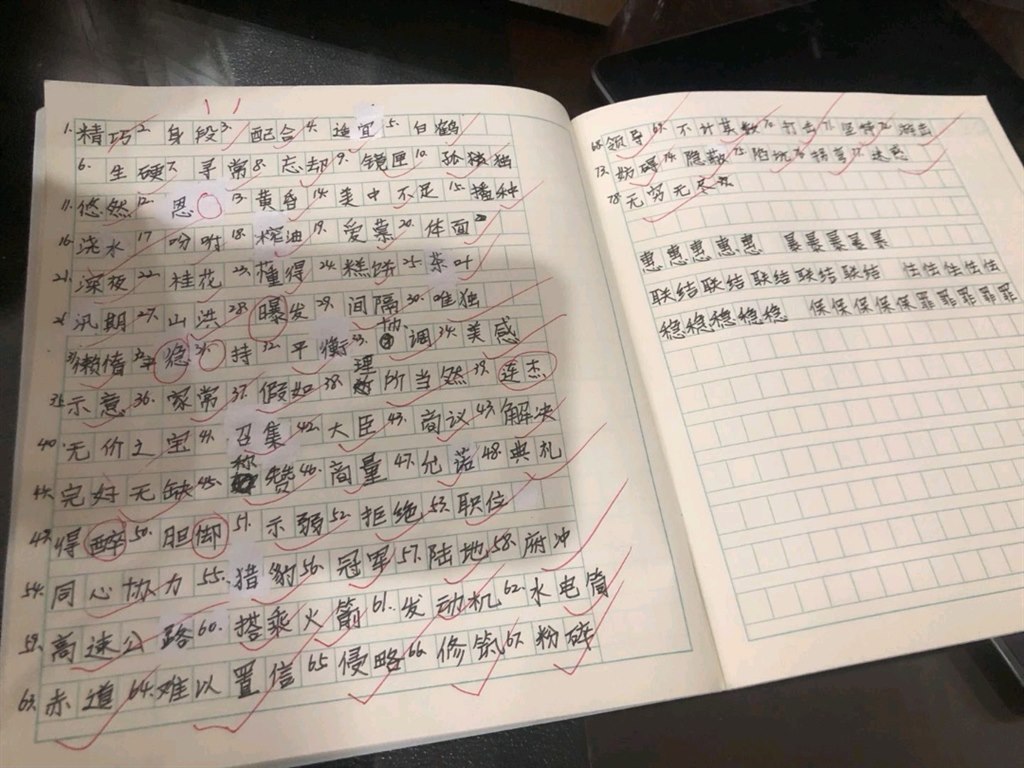 1. 精巧 2. 身段 3. 配合 4. 适宜 5. 白鹤
6. 生硬 7. 寻常 8. 忘却 9. 镜匣 10. 孤独
11. 悠然 12. 恩 13. 黄昏 14. 美中不足 15. 播种
16. 浇水 17. 吩咐 18. 榨油 19. 爱慕 20. 体面
21. 深夜 22. 桂花 23. 懂得 24. 糕饼 25. 茶叶
26. 汛期 27. 山洪 28. 曝发 29. 间隔 30. 唯独
31. 懒惰 稳 持 32. 平衡 33. 抽调 34. 美感
35. 示意 36. 家常 37. 假如 38. 理所当然 39. 连杰
40. 无价之宝 41. 召集 42. 大臣 43. 商议 43. 解决
44. 完好无缺 45. 称赞 46. 商量 47. 纪诺 48. 典礼
49. 得醉 50. 胆御 51. 示弱 52. 拒绝 53. 职位
54. 同心协力 55. 猎豹 56. 冠军 57. 陆地 58. 俯冲
59. 高速公路 60. 搭乘火箭 61. 发动机 62. 水电筒
63. 赤道 64. 难以置信 65. 侵略 66. 修筑 67. 粉碎
68. 领导 69. 不计其数 70. 打击 71. 坚持 72. 游击
73. 妨碍 74. 隐蔽 75. 陷坑 迷惑
78. 无穷无尽
惠惠惠惠惠
联结联结联结联结 任任任任任
稳稳稳稳稳 保保保保保罪罪罪罪罪